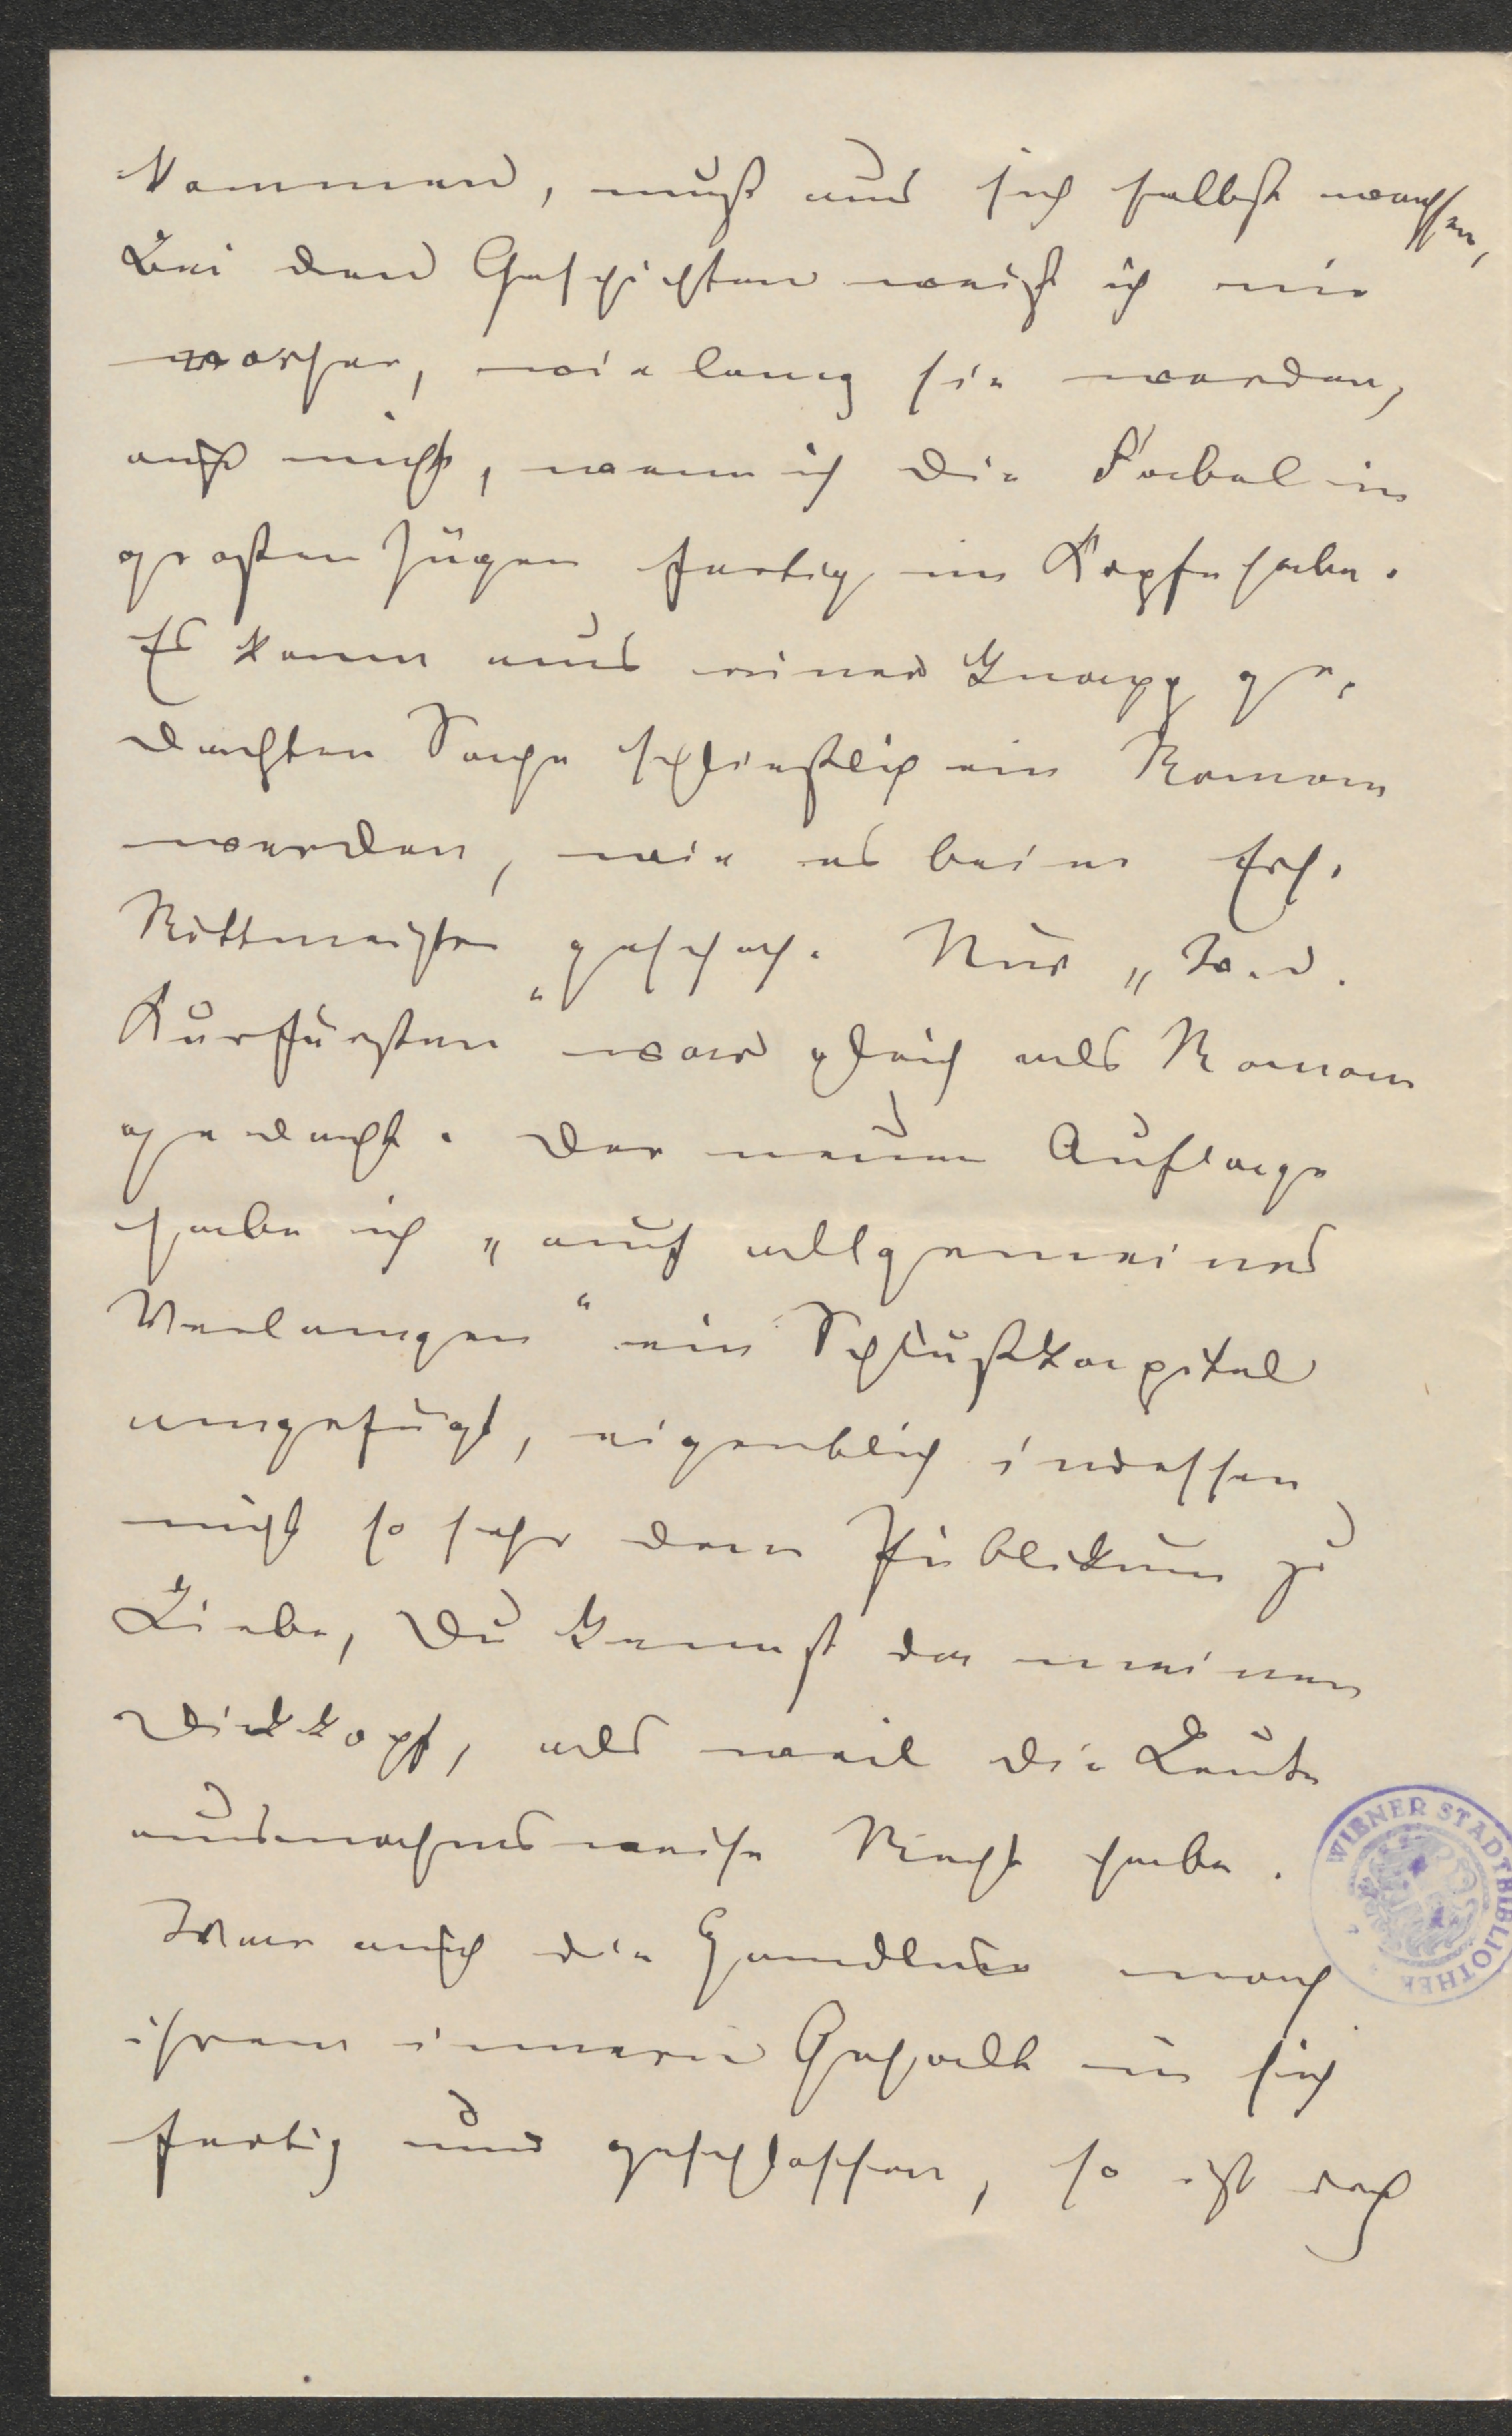 kommen, muß aus sich selbst wachsen,
Bei den Geschichten weiß ich nie
vorher, wie lang sie werden,
auch nicht, wenn ich die Fabel in
großen Zügen fertig im Kopfe habe.
Es kann aus einer knapp ge-
dachten Sache schließlich ein Roman
werden, wie es beim Erh.
Rittmeister“ geschah. Nur „W. d.
Kurfürsten“ war gleich als Roman
gedacht. Der neuen Auflage
habe ich „auf allgemeines
Verlangen“ ein Schlußkapitel
angefügt, eigentlich indessen
nicht so sehr dem Publikum zu
Liebe, Du kennst da meinen
Dickkopf, als weil die Leute
ausnahmsweise Recht haben.
War auch die Handlung nach
ihrem innern Gehalt in sich
fertig und geschlossen, so ist doch
WIENER STADTBIBLIOTHEK